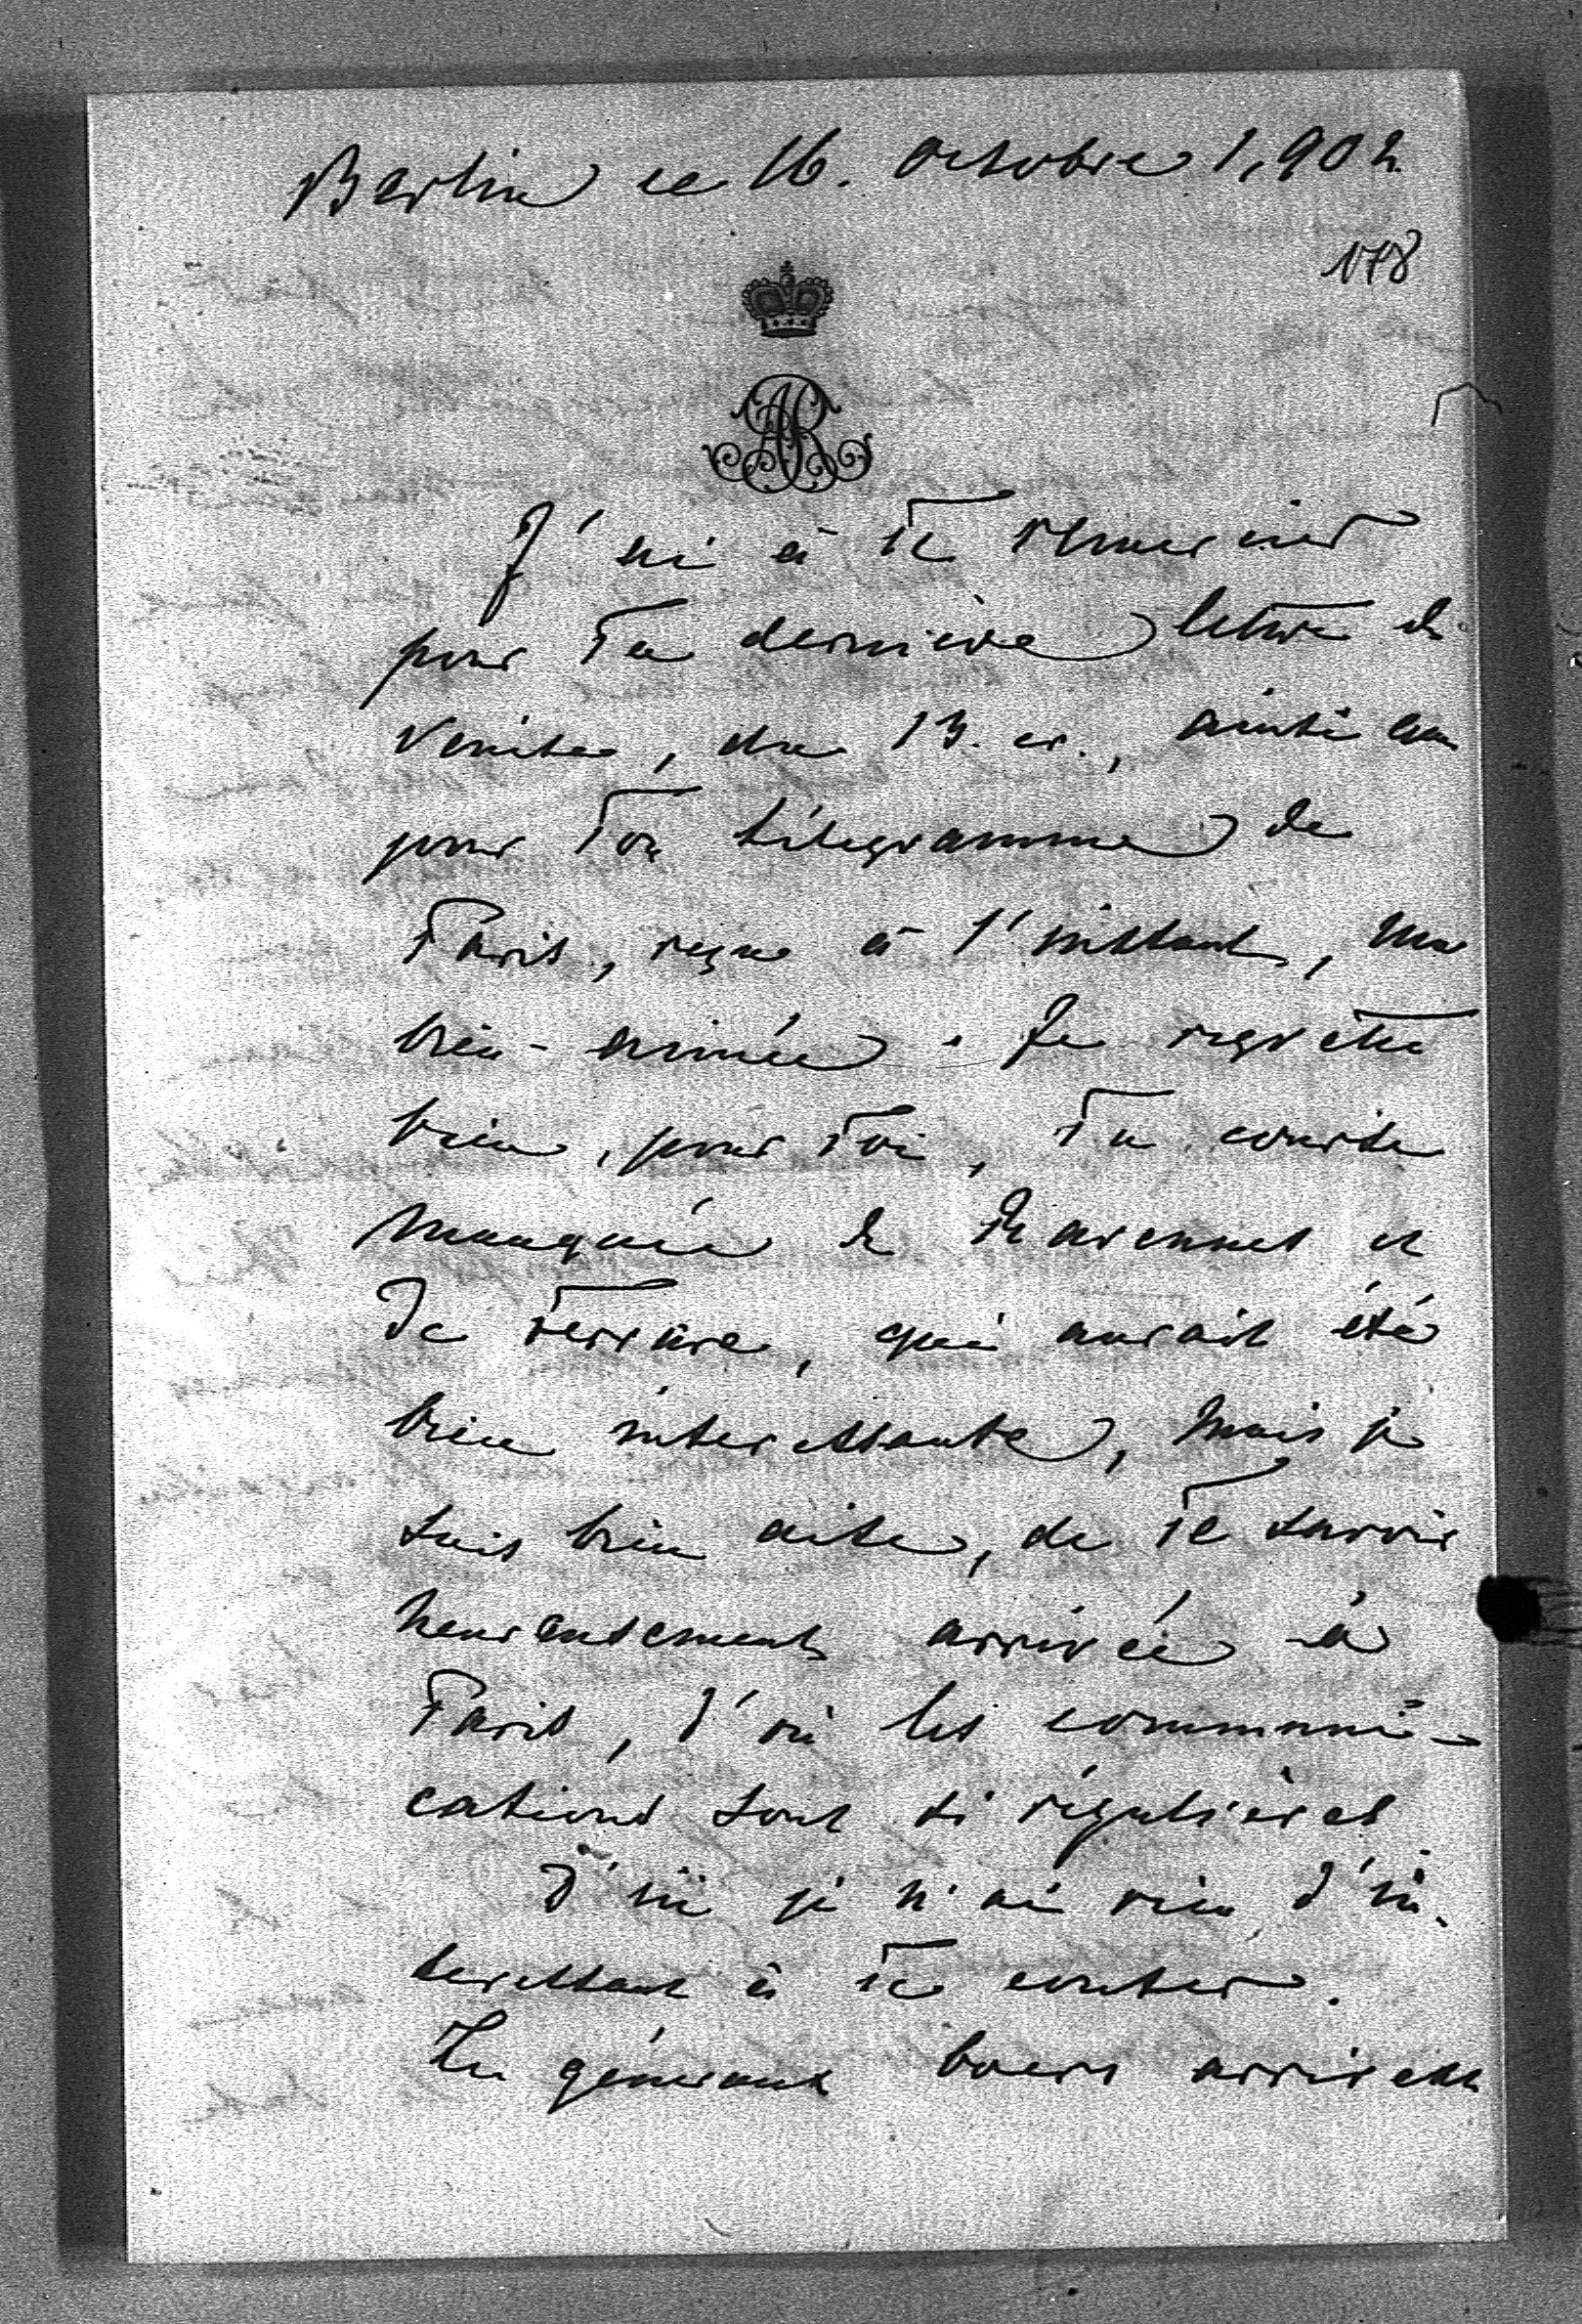 Berlin ce 16. Octobre 1,902.
178
AR
J'ai à Te remercier
pour Ta dernière lettre de
Venise, du 13. cr., ainsi que
pour Ton télégramme de
Paris, reçu à l'instant, ma
bien-aimée. Je regrette
bien, pour Toi, Ta course
manquée de Ravennes et
de Ferrare, qui aurait été
bien interessante, mais je
suis bien aise, de Te savoir
heureusement arrivée à
Paris, d'où les communi-
cations sont si régulières
D'ici je n'ai rien d'in-
teressant à Te conter.
Les généraux boers arrivent